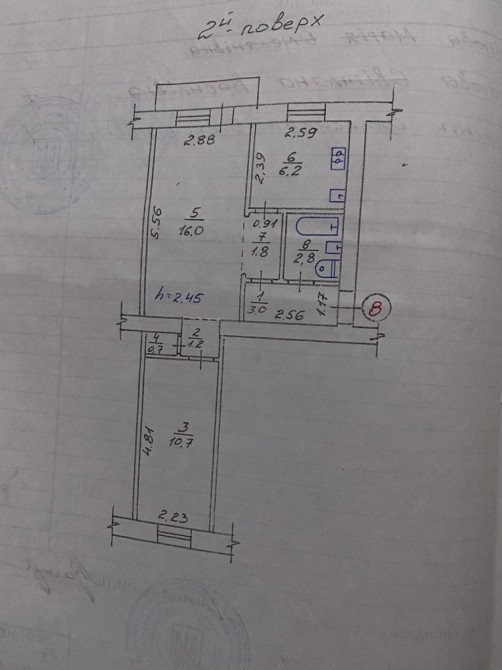 2й поверх
2,88
2,59
2,39
6
6,2
5,56
5
16,0
0,91
7
1,8
8
2,8
h=2.45
1
3,0
2.56
1.17
8
4
0.7
2
1.2
4.81
3
10,7
2,23